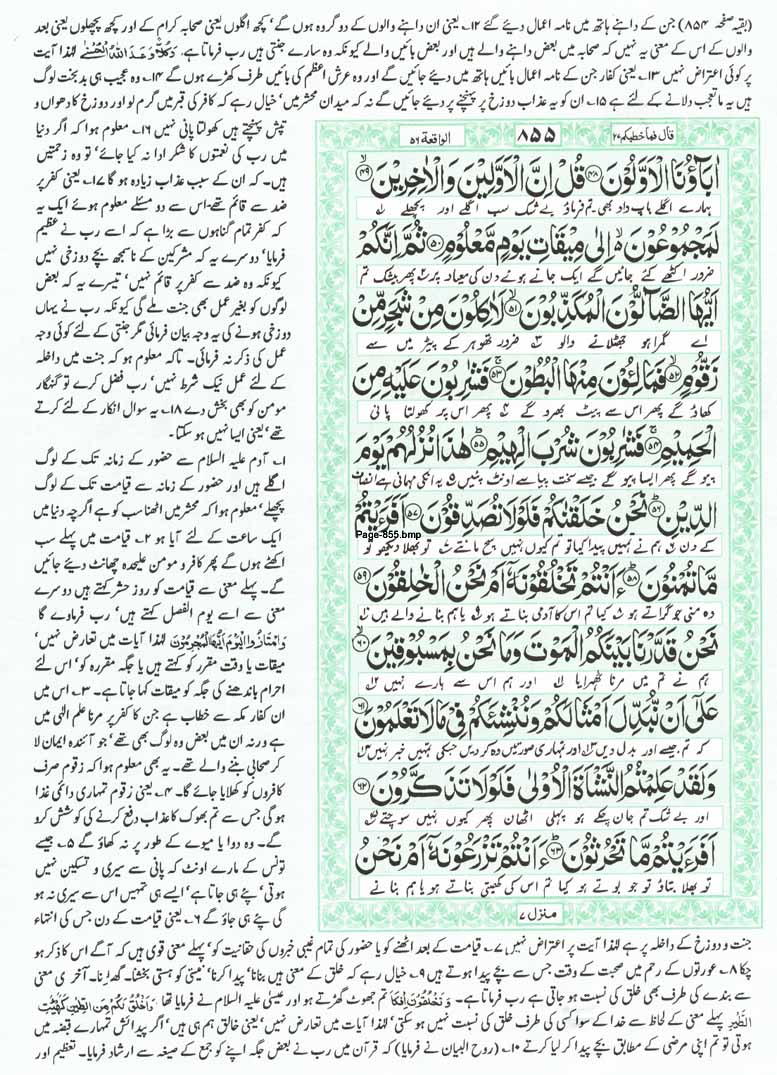 (بقیہ صفحہ ۸۵۴) جن کے داہنے ہاتھ میں نامہ اعمال دیئے گئے ۱۲۔ یعنی ان داہنے والوں کے دو گروہ ہوں گے' کچھ اگلوں یعنی صحابہ کرام کے اور کچھ پچھلوں یعنی بعد
والوں کے اس کے معنی یہ نہیں کہ صحابہ میں بعض داہنے والے ہیں اور بعض بائیں والے کیونکہ وہ سارے جنتی ہیں رب فرماتا ہے، وَكُلًّا وَّعَدَ اللّٰهُ الْحُسْنٰى لہٰذا آیت
پر کوئی اعتراض نہیں ۱۳۔ یعنی کفار جن کے نامہ اعمال بائیں ہاتھ میں دیئے جائیں گے اور وہ عرش اعظم کی بائیں طرف کھڑے ہوں گے ۱۴۔ وہ عجیب ہی بدبخت لوگ
ہیں یہ ما تعجب دلانے کے لئے ہے ۱۵۔ ان کو یہ عذاب دوزخ پر پہنچنے پر دیئے جائیں گے نہ کہ میدان محشر میں' خیال رہے کہ کافر کی قبر میں گرم لو اور دوزخ کا دھواں و
تپش پہنچتے ہیں کھولتا پانی نہیں ۱۶۔ معلوم ہوا کہ اگر دنیا
میں رب کی نعمتوں کا شکر ادا نہ کیا جائے' تو وہ زحمتیں
ہیں۔ کہ ان کے سبب عذاب زیادہ ہو گا ۱۷۔ یعنی کفر پر
ضد سے قائم تھے۔ اس سے دو مسئلے معلوم ہوئے ایک یہ
کہ کفر تمام گناہوں سے بڑا ہے کہ اسے رب نے عظیم
فرمایا' دوسرے یہ کہ مشرکین کے ناسمجھ بچے دوزخی نہیں
کیونکہ وہ ضد سے کفر پر قائم نہیں' تیسرے یہ کہ بعض
لوگوں کو بغیر عمل بھی جنت ملے گی کیونکہ رب نے یہاں
دوزخی ہونے کی یہ وجہ بیان فرمائی مگر جنتی کے لئے کوئی وجہ
عمل کی ذکر نہ فرمائی۔ تاکہ معلوم ہو کہ جنت میں داخلہ
کے لئے عمل نیک شرط نہیں' رب فضل کرے تو گنہگار
مومن کو بھی بخش دے ۱۸۔ یہ سوال انکار کے لئے کرتے
تھے' یعنی ایسا نہیں ہو سکتا۔
۱۔ آدم علیہ السلام سے حضور کے زمانہ تک کے لوگ
اگلے ہیں اور حضور کے زمانہ سے قیامت تک کے لوگ
پچھلے' معلوم ہوا کہ محشر میں اٹھنا سب کو ہے اگرچہ دنیا میں
ایک ساعت کے لئے آیا ہو ۲۔ قیامت میں پہلے سب
اکٹھے ہوں گے پھر کافر و مومن علیحدہ چھانٹ دیئے جائیں
گے۔ پہلے معنی سے قیامت کو روز حشر کہتے ہیں دوسرے
معنی سے اسے یوم الفصل کہتے ہیں' رب فرماوے گا
وَامْتَازُوا الْيَوْمَ اَيُّهَا الْمُجْرِمُوْنَ لہٰذا آیات میں تعارض نہیں'
میقات یا وقت مقرر کو کہتے ہیں یا جگہ مقررہ کو' اس لئے
احرام باندھنے کی جگہ کو میقات کہا جاتا ہے۔ ۳۔ اس میں
ان کفار مکہ سے خطاب ہے جن کا کفر پر مرنا علم الٰہی میں
ہے ورنہ ان میں بعض وہ لوگ بھی تھے' جو آئندہ ایمان لا
کر صحابی بننے والے تھے۔ یہ بھی معلوم ہوا کہ زقوم صرف
کافروں کو کھلایا جائے گا۔ ۴۔ یعنی زقوم تمہاری دائمی غذا
ہوگی جس سے تم بھوک کا عذاب دفع کرنے کی کوشش کرو
گے۔ وہ دوا یا میوے کے طور پر نہ کھاؤ گے ۵۔ جیسے
تونس کے مارے اونٹ کہ پانی سے سیری و تسکین نہیں
ہوتی' پئے ہی جاتا ہے' ایسے ہی تمہیں اس سے سیری نہ ہو
گی پئے ہی جاؤ گے ۶۔ یعنی قیامت کے دن جس کی انتہاء
قال فما خطبکم ۲۷ ۸۵۵ الواقعۃ ۵۶
اٰبَآؤُنَا الْاَوَّلُوْنَ ﴿۴۸﴾ قُلْ اِنَّ الْاَوَّلِيْنَ وَالْاٰخِرِيْنَ ﴿۴۹﴾
ہمارے اگلے باپ دادا بھی۔ تم فرماؤ بے شک سب اگلے اور پچھلے ۱
لَمَجْمُوْعُوْنَ ۙ اِلٰى مِيْقَاتِ يَوْمٍ مَّعْلُوْمٍ ﴿۵۰﴾ ثُمَّ اِنَّكُمْ
ضرور اکٹھے کئے جائیں گے ایک جانے ہوئے دن کی میعاد پر ۲ پھر بیشک تم
اَيُّهَا الضَّآلُّوْنَ الْمُكَذِّبُوْنَ ﴿۵۱﴾ لَاٰكِلُوْنَ مِنْ شَجَرٍ مِّنْ
اے گمراہو جھٹلانے والو ۳ ضرور تھوہر کے پیڑ میں سے
زَقُّوْمٍ ﴿۵۲﴾ فَمَالِـُٔوْنَ مِنْهَا الْبُطُوْنَ ﴿۵۳﴾ فَشٰرِبُوْنَ عَلَيْهِ مِنَ
کھاؤ گے پھر اس سے پیٹ بھرو گے ۴ پھر اس پر کھولتا پانی
الْحَمِيْمِ ﴿۵۴﴾ فَشٰرِبُوْنَ شُرْبَ الْهِيْمِ ﴿۵۵﴾ هٰذَا نُزُلُهُمْ يَوْمَ
پیو گے پھر ایسا پیو گے جیسے سخت پیاسے اونٹ پئیں ۵ یہ انکی مہمانی ہے انصاف
الدِّيْنِ ﴿۵۶﴾ نَحْنُ خَلَقْنٰكُمْ فَلَوْلَا تُصَدِّقُوْنَ ﴿۵۷﴾ اَفَرَءَيْتُمْ
Page-855.bmp
کے دن ۶ ہم نے تمہیں پیدا کیا تو تم کیوں نہیں سچ مانتے ۷ تو بھلا دیکھو تو
مَّا تُمْنُوْنَ ﴿۵۸﴾ ءَاَنْتُمْ تَخْلُقُوْنَهٗٓ اَمْ نَحْنُ الْخٰلِقُوْنَ ﴿۵۹﴾
وہ منی جو گراتے ہو ۸ کیا تم اس کا آدمی بناتے ہو ۹ یا ہم بنانے والے ہیں ۱۰
نَحْنُ قَدَّرْنَا بَيْنَكُمُ الْمَوْتَ وَمَا نَحْنُ بِمَسْبُوْقِيْنَ ﴿۶۰﴾
ہم نے تم میں مرنا ٹھہرایا ۱۱ اور ہم اس سے ہارے نہیں ۱۲
عَلٰٓى اَنْ نُّبَدِّلَ اَمْثَالَكُمْ وَنُنْشِئَكُمْ فِيْ مَا لَا تَعْلَمُوْنَ ﴿۶۱﴾
کہ تم جیسے اور بدل دیں ۱۳ اور تمہاری صورتیں وہ کر دیں جسکی تمہیں خبر نہیں ۱۴
وَلَقَدْ عَلِمْتُمُ النَّشْاَةَ الْاُوْلٰى فَلَوْلَا تَذَكَّرُوْنَ ﴿۶۲﴾
اور بے شک تم جان چکے ہو پہلی اٹھان پھر کیوں نہیں سوچتے ۱۵
اَفَرَءَيْتُمْ مَّا تَحْرُثُوْنَ ﴿۶۳﴾ ءَاَنْتُمْ تَزْرَعُوْنَهٗٓ اَمْ نَحْنُ
تو بھلا بتاؤ تو جو بوتے ہو کیا تم اس کی کھیتی بناتے ہو یا ہم بنانے
منزل ۷
جنت و دوزخ کے داخلہ پر ہے لہٰذا آیت پر اعتراض نہیں ۷۔ قیامت کے بعد اٹھنے کو یا حضور کی تمام غیبی خبروں کی حقانیت کو' پہلے معنی قوی ہیں کہ آگے اس کا ذکر ہو
چکا ۸۔ عورتوں کے رحم میں صحبت کے وقت جس سے بچے پیدا ہوتے ہیں ۹۔ خیال رہے کہ خلق کے معنی ہیں بنانا' پیدا کرنا' نیستی کو ہستی بخشنا۔ گھڑنا۔ آخری معنی
سے بندے کی طرف بھی خلق کی نسبت ہو جاتی ہے رب فرماتا ہے۔ وَتَخْلُقُوْنَ اِفْكًا تم جھوٹ گھڑتے ہو اور عیسیٰ علیہ السلام نے فرمایا تھا وَاَخْلُقُ لَكُمْ مِنَ الطِّيْنِ كَهَيْئَةِ
الطَّيْرِ پہلے معنی کے لحاظ سے خدا کے سوا کسی کی طرف خلق کی نسبت نہیں ہو سکتی' لہٰذا آیات میں تعارض نہیں' یعنی خالق ہم ہی ہیں' اگر پیدائش تمہارے قبضہ میں
ہوتی تو تم اپنی مرضی کے مطابق بچے پیدا کر لیا کرتے ۱۰۔ (روح البیان نے فرمایا) کہ قرآن میں رب نے بعض جگہ اپنے کو جمع کے صیغہ سے ارشاد فرمایا۔ تعظیم اور